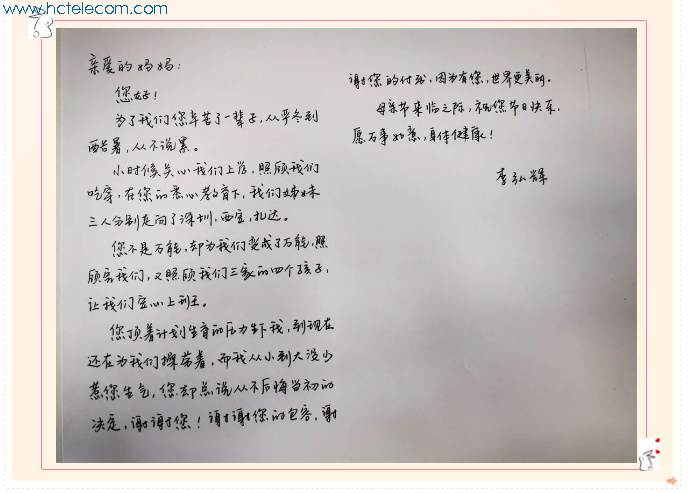 www.hctelecom.com
亲爱的妈妈：
您好！
为了我们您辛苦了一辈子，从严冬到
酷暑，从不说累。
小时候关心我们上学，照顾我们
吃穿，在您的悉心教育下，我们姊妹
三人分别走向了深圳，西宝，扎达。
您不是万能，却为我们变成了万能，照
顾完我们，又照顾我们三家的四个孩子，
让我们安心上班。
您顶着计划生育的压力生下我，到现在
还在为我们操劳着，而我从小到大没少
惹您生气，您却总说从不后悔当初的
决定，谢谢您！谢谢您的包容，谢
谢您的付出，因为有您，世界更美丽。
母亲节来临之际，祝您节日快乐，
愿万事如意，身体健康！
李弘辉